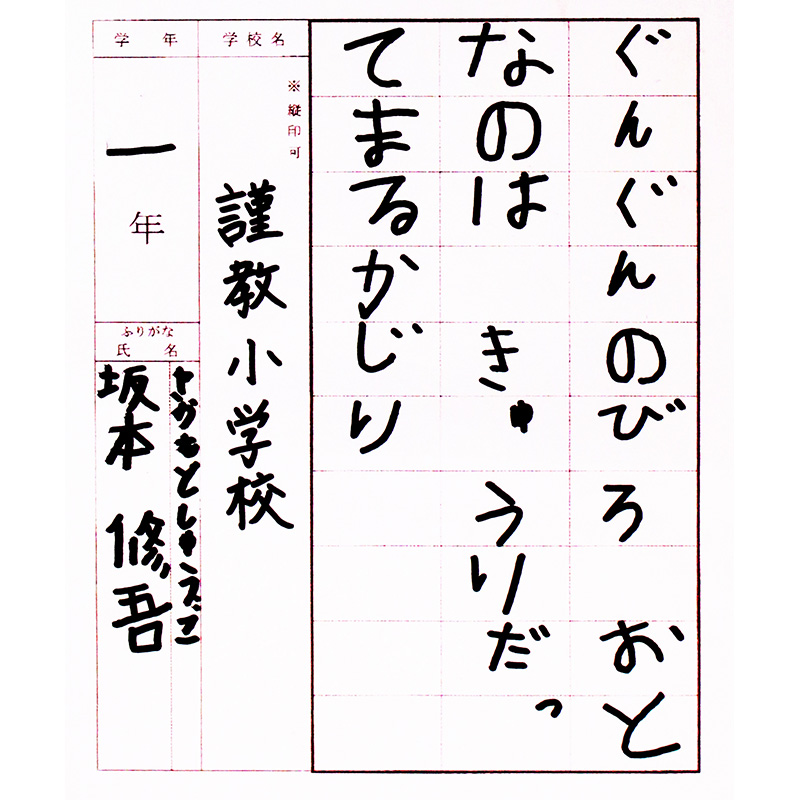 ぐんぐんのびろ　おと
なのは　きゅうりだっ
てまるかじり
学校名
※縦印可
謹教小学校
学年
一年
ふりがな
氏名
さかもとしゅうご
坂本　修吾